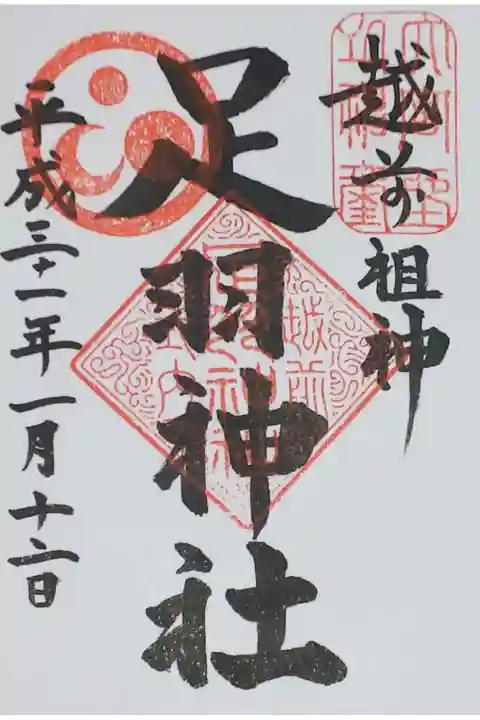 越前
祖神
足羽神社
平成三十一年一月十二日